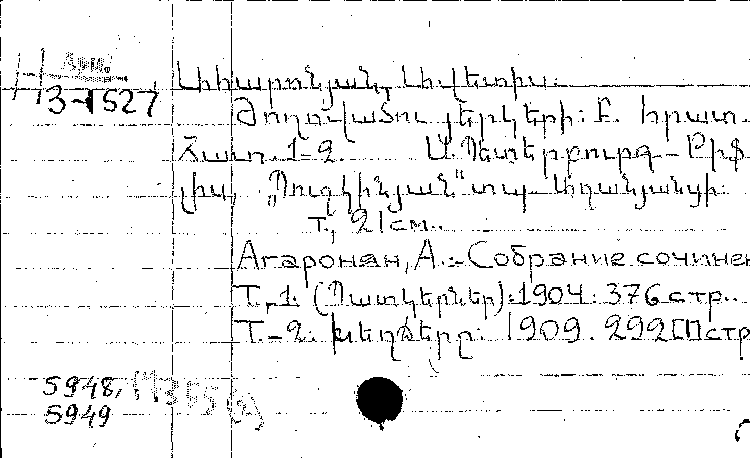 Арм.
3-1527
Ահարոնյան, Ավետիս.
Ժողովածու յերկերի: Բ. հրատ.
Հատ. 1-2. Ս.Պետերբուրգ-Թիֆ
լիս, „Պուշկինյան" տպ. Աղանյանցի
т., 21 см.
Агаронян, А. - Собрание сочинен
Т., 1. (Պատկերներ). 1904. 376 стр.
Т.-2. Խեղճերը: 1909. 292[1] стр
5948,
5949